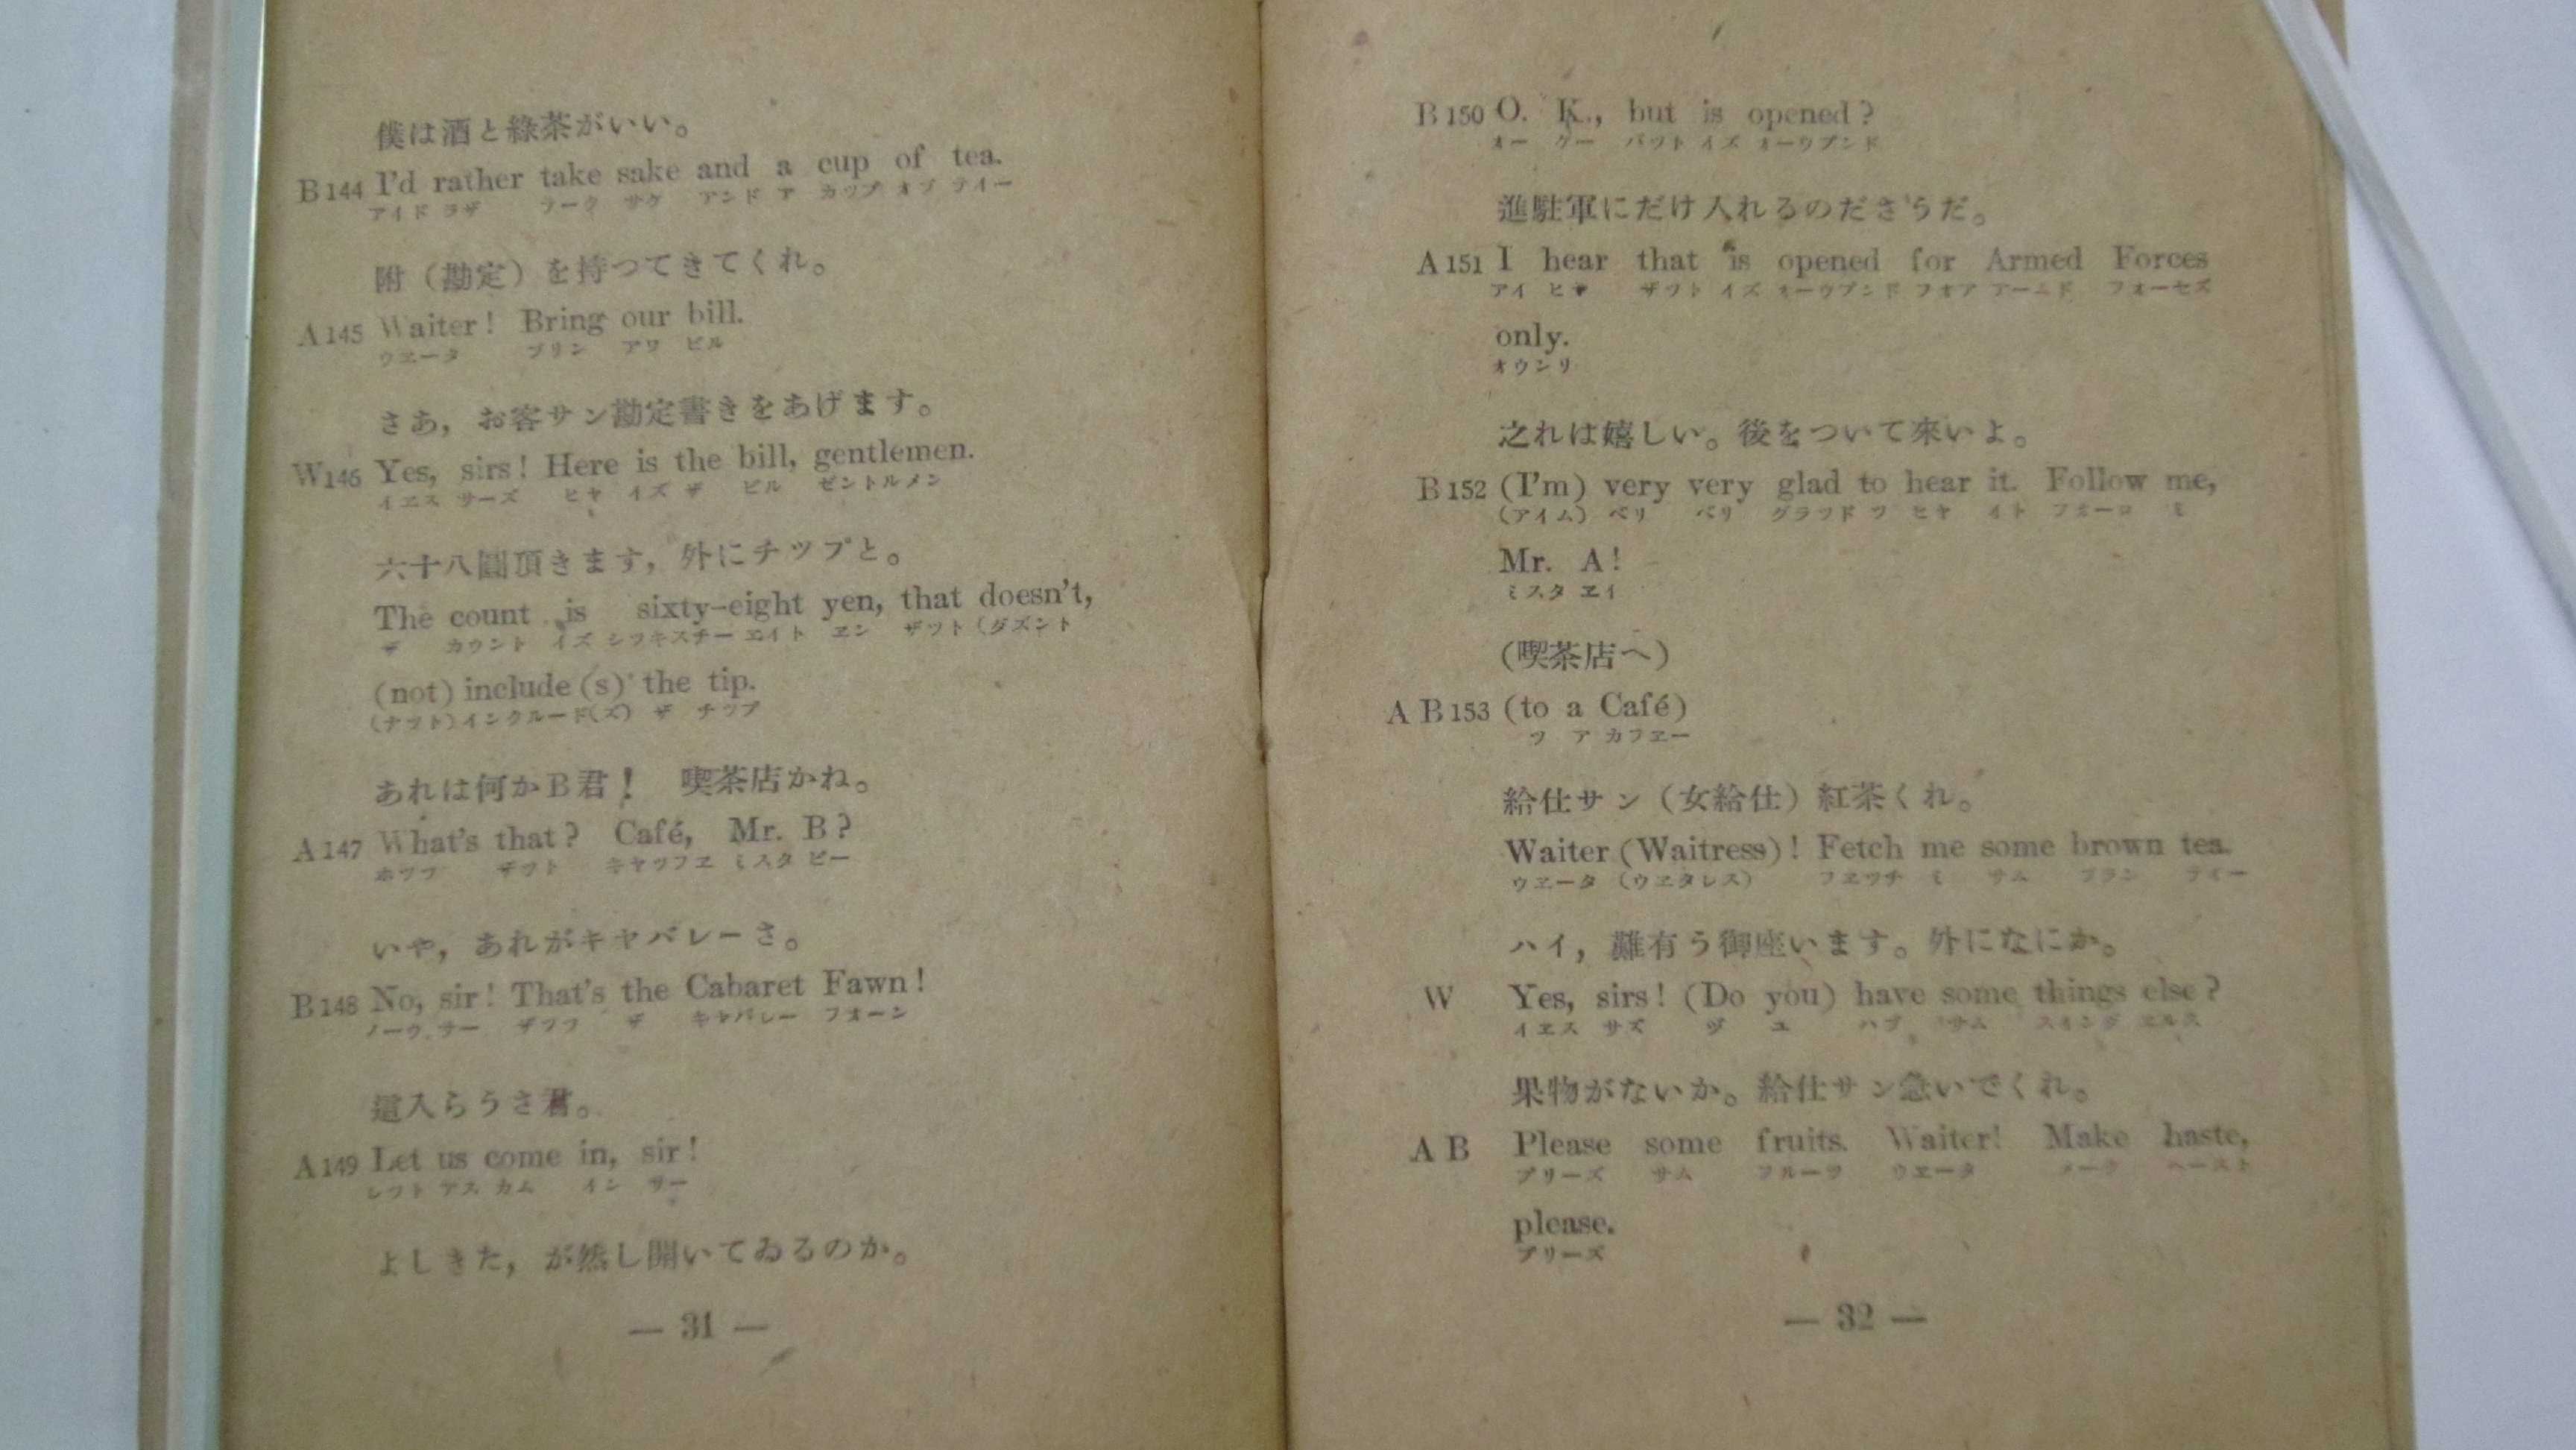 僕は酒と綠茶がいい。
B144 I'd rather take sake and a cup of tea.
アイド ラザ テーク サケ アンド ア カップ オブ テイー
附（勘定）を持つてきてくれ。
A145 Waiter! Bring our bill.
ウヱータ ブリン アワ ビル
さあ，お客サン勘定書きをあげます。
W146 Yes, sirs! Here is the bill, gentlemen.
イヱス サーズ ヒヤ イズ ザ ビル ゼントルメン
六十八圓頂きます，外にチツプと。
The count is sixty-eight yen, that doesn't,
ザ カウント イズ シツキスチー エイト ヱン ザツト（ダズント
(not) include(s) the tip.
（ナツト）インクルード（ズ） ザ チツプ
あれは何かB君！ 喫茶店かね。
A147 What's that? Café, Mr. B?
ホツツ ザツト キヤツフヱ ミスタ ビー
いや，あれがキヤバレーさ。
B148 No, sir! That's the Cabaret Fawn!
ノーウ サー ザツツ ザ キヤバレー フオーン
這入らうさ君。
A149 Let us come in, sir!
レツト アス カム イン サー
よしきた，が然し開いてゐるのか。
— 31 —
B150 O. K., but is opened?
オー ケー バツト イズ オーウプンド
進駐軍にだけ入れるのださうだ。
A151 I hear that is opened for Armed Forces
アイ ヒヤ ザツト イズ オーウプンド フオア アームド フオーセズ
only.
オウンリ
之れは嬉しい。後をついて來いよ。
B152 (I'm) very very glad to hear it. Follow me,
（アイム） ベリ ベリ グラツド ツ ヒヤ イト フオーロ ミ
Mr. A!
ミスタ ヱイ
(喫茶店へ)
A B153 (to a Café)
ツ ア カフヱー
給仕サン（女給仕）紅茶くれ。
Waiter (Waitress)! Fetch me some brown tea.
ウヱータ （ウヱタレス） フヱツチ ミ サム ブラン テイー
ハイ，難有う御座います。外になにか。
W Yes, sirs! (Do you) have some things else?
イヱス サズ ヅ ユ ハブ サム スイング ヱルス
果物がないか。給仕サン急いでくれ。
A B Please some fruits. Waiter! Make haste,
プリーズ サム フルーツ ウヱータ メーク ヘースト
please.
プリーズ
— 32 —